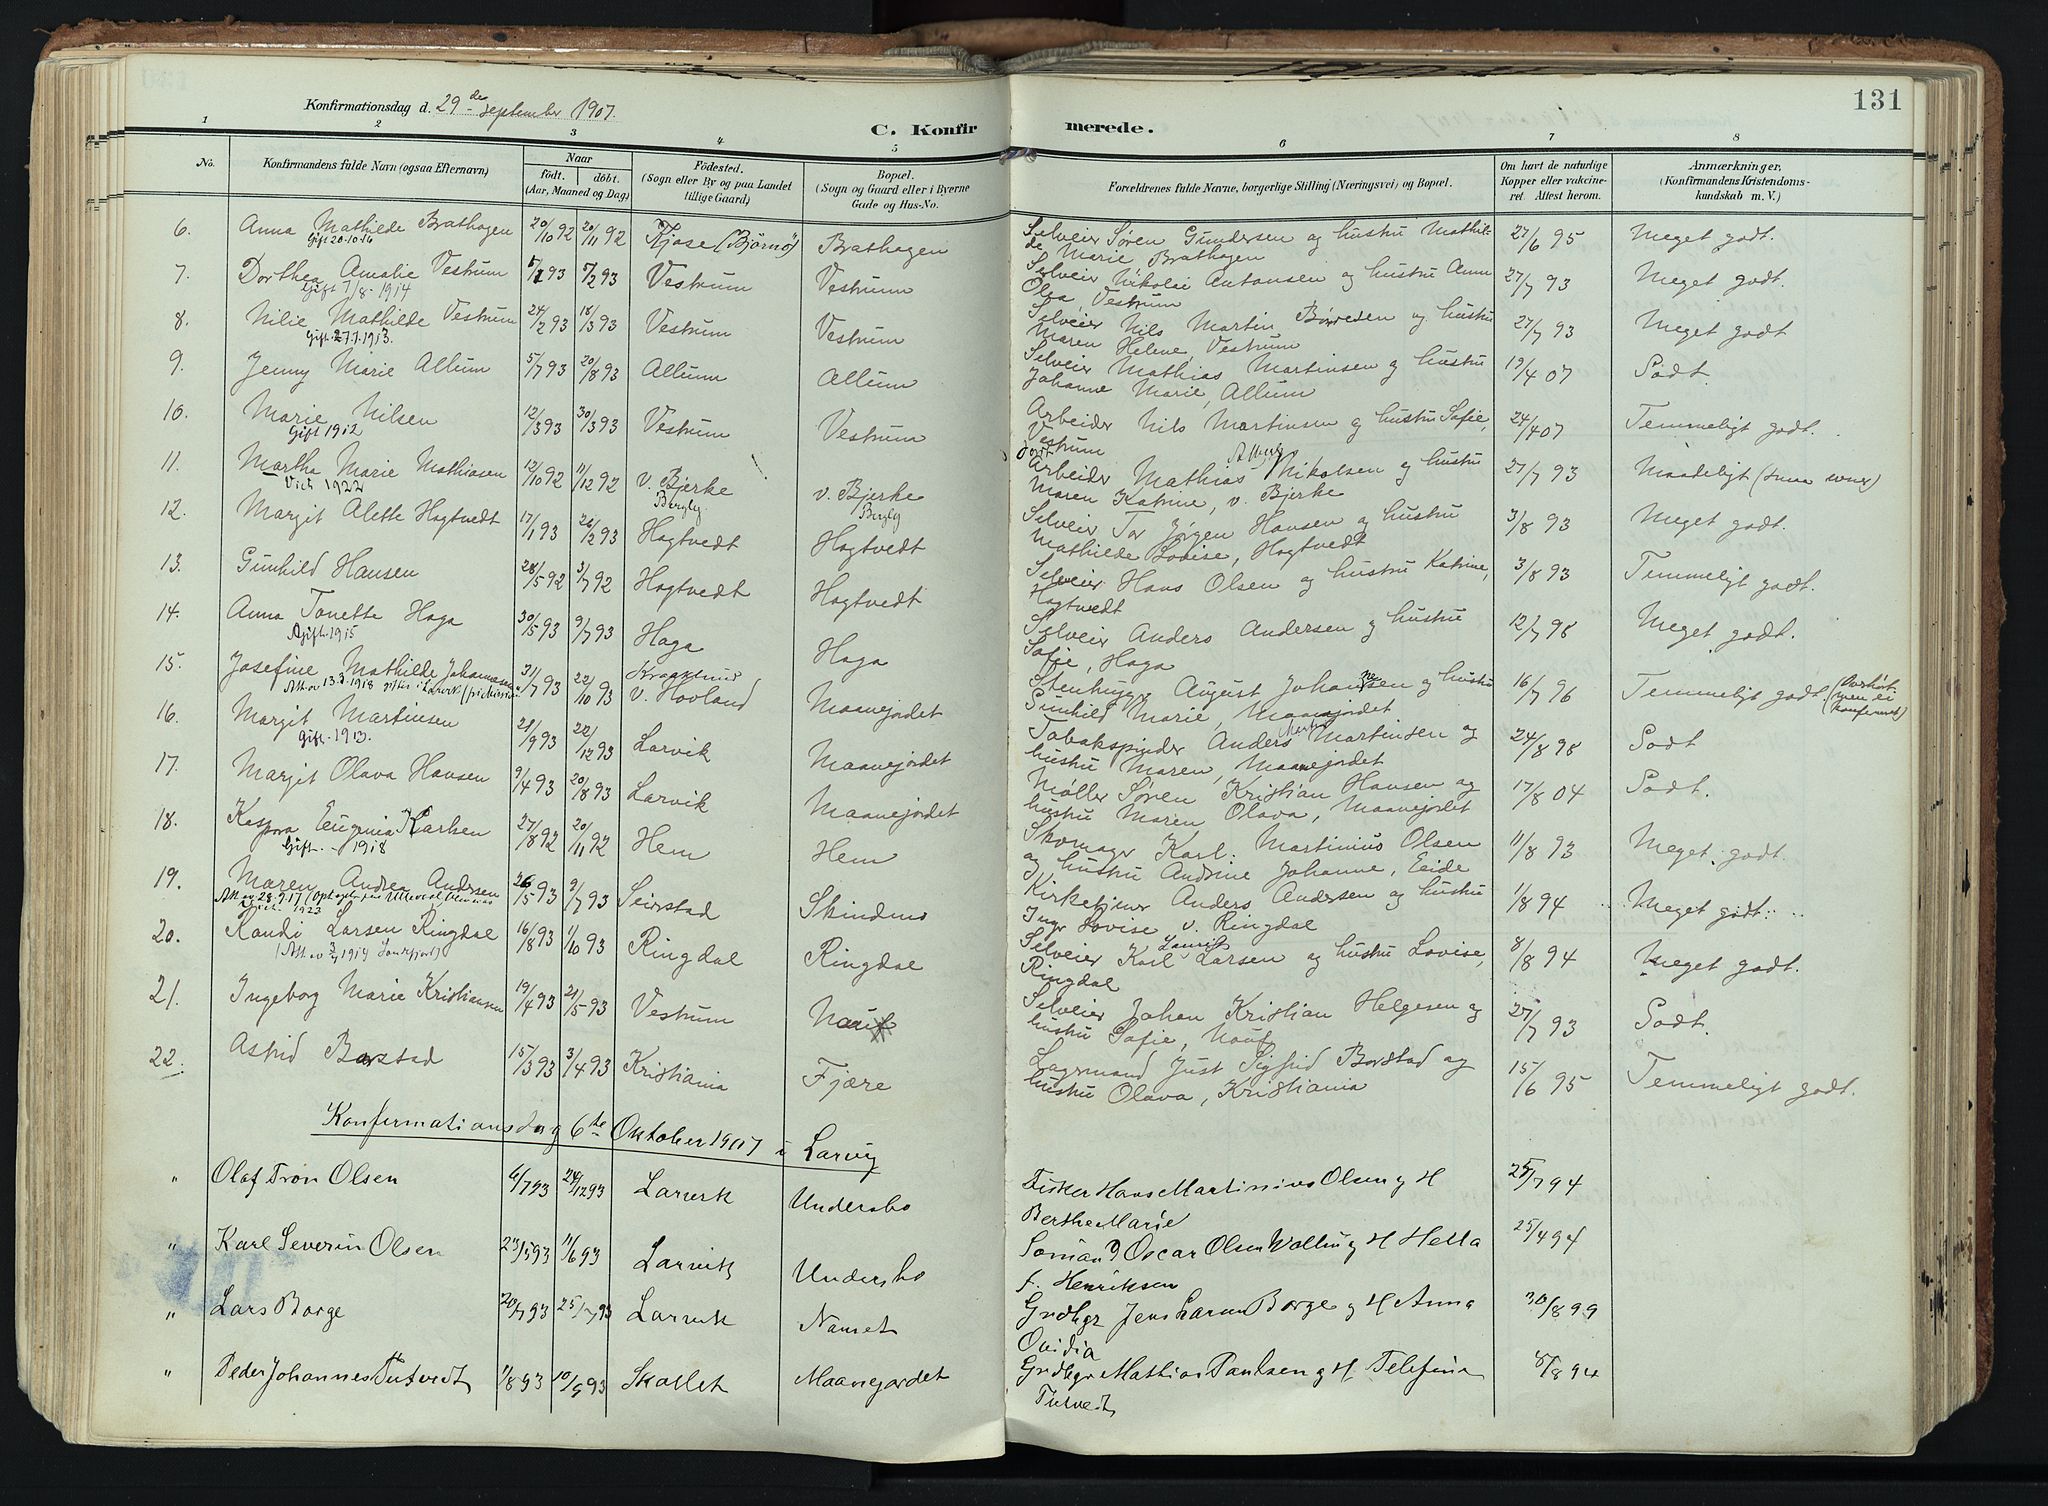 131
Konfirmationsdag d. 29de september 1907.
C. Konfirmerede.
1 2 3 4 5 6 7 8
No. Konfirmandens fulde Navn (ogsaa Efternavn) Naar födt. döbt. (Aar, Maaned og Dag) Födested. (Sogn eller By og paa Landet tillige Gaard) Bopæl. (Sogn og Gaard eller i Byerne Gade og Hus-No. Forældrenes fulde Navne, borgerlige Stilling (Næringsvei) og Bopæl. Om havt de naturlige Kopper eller vakcineret. Attest herom. Anmærkninger, (Konfirmandens Kristendomskundskab m. V.)
6. Anna Mathilde Brathagen 20/10 92 20/11 92 Kjose (Bjørnø) Brathagen Selveier Søren Gundersen og hustru Mathilde Marie Brathagen 27/6 95 Meget godt.
Gift 20-10-16
7. Dorthea Amalie Vestrum 5/1 93 5/2 93 Vestrum Vestrum Selveier Nikolai Antonsen og hustru Anna Olea, Vestrum 27/7 93 Meget godt.
Gift 7/8-1914
8. Nilie Mathilde Vestrum 24/2 93 18/3 93 Vestrum Vestrum Selveier Nils Martin Børresen og hustru Maren Helene, Vestrum 27/7 93 Meget godt
Gift 27.1.1913.
9. Jenny Marie Allum 5/7 93 20/8 93 Allum Allum Selveier Mathias Martinsen og hustru Johanne Marie, Allum 19/4 07 Godt.
10. Marie Nilsen 12/3 93 30/3 93 Vestrum Vestrum Arbeider Nils Martinsen og hustru Sofie, Vestrum 24/4 07 Temmeligt godt.
Gift 1912
11. Martha Marie Mathiasen 12/10 92 11/12 92 v. Bjerke v. Bjerke Arbeider Mathias Nikolsen og hustru Maren Katrine, v. Bjerke 27/7 93 Maadeligt (sma evner)
Vich 1922
12. Margit Alette Hogtvedt 17/1 93 26/2 93 Bergly Hogtvedt Bergly Hogtvedt Selveier Tor Jørgen Hansen og hustru Mathilde Lovise, Hogtvedt 3/8 93 Meget godt.
13. Gunhild Hansen 28/5 92 3/7 92 Hogtvedt Hogtvedt Selveier Hans Olsen og hustru Katrine, Hogtvedt 3/8 93 Temmeligt godt.
14. Anna Tonette Haga 30/5 93 9/7 93 Haga Haga Selveier Anders Andersen og hustru Sofie, Haga 12/7 98 Meget godt.
Gift. 1915
15. Josefine Mathilde Johannesen 31/7 93 22/10 93 v. Hovland Maanejordet Stenhugger August Johansen og hustru Gunhild Marie, Maanejordet 16/7 96 Temmeligt godt
16. Margit Martinsen 21/9 93 22/12 93 Larvik Maanejordet Tobakspinder Anders Martinsen og hustru Maren, Maanejordet 24/8 98 Godt
Gift. 1913.
17. Margit Olava Hansen 9/4 93 20/8 93 Larvik Maanejordet Møller Søren Kristian Hansen og hustru Maren Olava, Maanejordet 17/8 04 Godt.
18. Kaspara Eugenia Karlsen 27/8 92 20/11 92 Hem Hem Skomager Karl Martinius Olsen og hustru Andrine Johanne, Eeide 11/8 93 Meget godt.
Gift. - 1918
19. Maren Andrea Andersen 26/5 93 9/7 93 Seierstad Skindmo Kirketjener Anders Andersen og hustru Inger Lovise v. Ringdal 1/8 94 Meget godt.
20. Randi Larsen Ringdal 16/8 93 1/10 93 Ringdal Ringdal Selveier Karl Laurits Larsen og hustru Lovise, Ringdal 8/8 94 Meget godt.
21. Ingeborg Marie Kristiansen 19/4 93 21/5 93 Vestrum Nauf Selveier Johan Kristian Helgesen og hustru Sofie, Nauf 27/7 93 Godt.
22. Astrid Borstad 15/3 93 3/4 93 Kristiania Fjære Lagermand Just Sigfrid Borstad og hustru Olava, Kristiania 15/6 95 Temmeligt godt.
Konfirmationsdag 6te Oktober 1907 i Larvig
" Olaf Tron Olsen 6/7 93 24/12 93 Larvik Undersbo Fisker Hans Martinius Olsen og H Berthe Marie 25/7 94
" Karl Severin Olsen 23/5 93 11/6 93 Larvik Undersbo Sømand Oscar Olsen Valling og H Hella f. Henriksen 25/4 94
" Lars Borge 20/7 93 25/7 93 Larvik Nanset Grdbgr Jens Larsen Borge og H Anna Ovidia 30/8 99
" Peder Johannes Tutvedt 1/8 93 10/9 93 Skallet Maanejordet Grdbgr Mathias Paulsen og H. Telefine Tutvedt 5/8 94